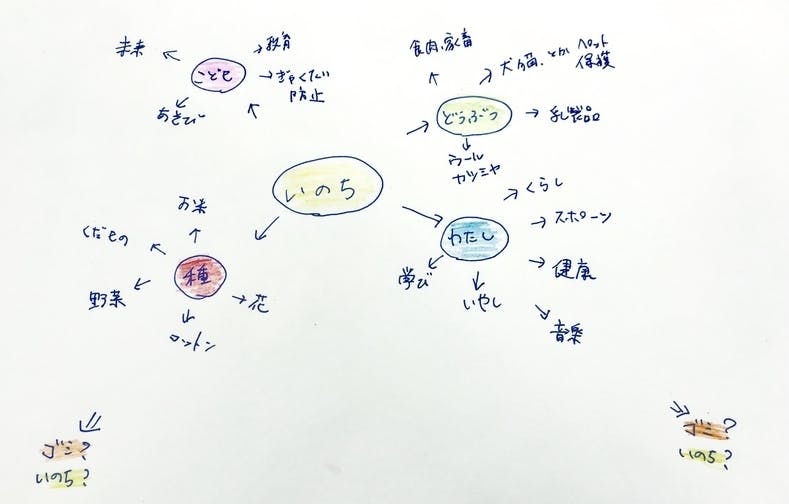 未来
こども
教育
ぎゃくたい
防止
あそび
食肉、家畜
犬、猫、とか ペット
保護
どうぶつ
乳製品
ウール
カシミヤ
いのち
お米
くだもの
種
野菜
花
コットン
くらし
わたし
スポーン
学び
健康
いやし
音楽
ゴミ?
いのち?
ゴミ?
いのち?